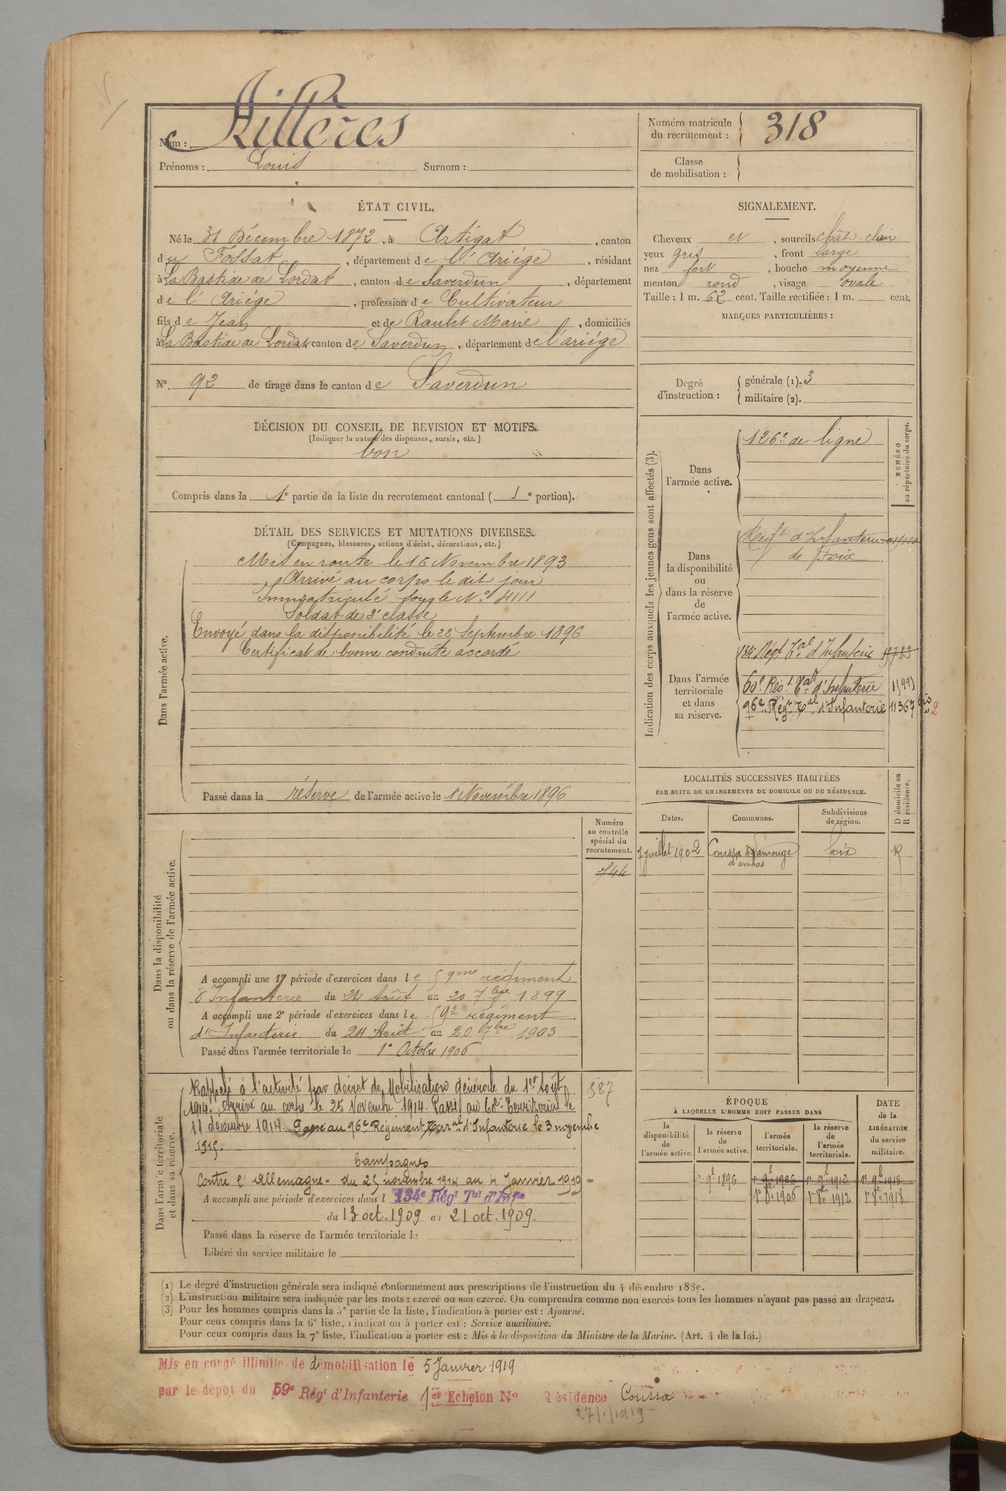 Nom : Rillères
Prénoms : Louis Surnom :
Numéro matricule du recrutement : 318
Classe de mobilisation :
ÉTAT CIVIL.
Né le 31 Décembre 1872, à Artigat, canton
du Fossat, département de l'Ariége, résidant
à La Bastide de Lordat, canton de Saverdun, département
de l'Ariége, profession de Cultivateur
fils de Jean et de Raulet Marie, domiciliés
à La Bastide de Lordat canton de Saverdun, département de l'ariége
N° 92 de tirage dans le canton de Saverdun
SIGNALEMENT.
Cheveux et, sourcils chât. clair
yeux gris, front large
nez fort, bouche moyenne
menton rond, visage ovale
Taille : 1 m. 62 cent. Taille rectifiée : 1 m. cent.
MARQUES PARTICULIÈRES :
Degré d'instruction : générale (1). 3
militaire (2).
DÉCISION DU CONSEIL DE REVISION ET MOTIFS.
(Indiquer la nature des dispenses, sursis, etc.)
bon
Compris dans la 1e partie de la liste du recrutement cantonal ( 1e portion).
DÉTAIL DES SERVICES ET MUTATIONS DIVERSES.
(Campagnes, blessures, actions d'éclat, décorations, etc.)
Dans l'armée active.
Mis en route le 16 Novembre 1893
Arrivé au corps le dit jour
Immatriculé sous le N° 4111
Soldat de 2e classe
Envoyé dans la disponibilité le 22 Septembre 1896
Certificat de bonne conduite accordé
Passé dans la réserve de l'armée active le 1 Novembre 1896
Indication des corps auxquels les jeunes gens sont affectés (3).
NUMÉRO au répertoire du corps.
Dans l'armée active.
126e de ligne
Dans la disponibilité ou dans la réserve de l'armée active.
Regt d'Infanterie
de Foix
Dans l'armée territoriale et dans sa réserve.
134 Régt Tal d'Infanterie
60e Régt Tal d'Infanterie
96e Régt Tal d'Infanterie 11367
LOCALITÉS SUCCESSIVES HABITÉES
PAR SUITE DE CHANGEMENTS DE DOMICILE OU DE RÉSIDENCE.
D domicile ou R résidence.
Dates. Communes. Subdivisions de région.
7 juillet 1902 Coussa Foix R
Numéro au contrôle spécial du recrutement.
Dans la disponibilité ou dans la réserve de l'armée active.
A accompli une 1re période d'exercices dans le 59me régiment
d'Infanterie du 24 Août au 20 7bre 1899
A accompli une 2e période d'exercices dans le 59e régiment
d'Infanterie du 24 Août au 20 7bre 1903
Passé dans l'armée territoriale le 1er Octobre 1906
Dans l'armée territoriale et dans sa réserve.
Rappelé à l'activité par décret de Mobilisation générale du 1er Août
1914. Arrivé au corps le 25 Novembre 1914. Passé au 60e Territorial le
11 décembre 1914. Passé au 96e Régiment Terral d'Infanterie le 3 novembre
1915.
587
Campagnes
Contre l'Allemagne - du 25 novembre 1914 au 4 Janvier 1919 -
A accompli une période d'exercices dans l 134e Régt Tal d'Infie
du 13 oct. 1909 au 21 oct. 1909.
Passé dans la réserve de l'armée territoriale le
Libéré du service militaire le
ÉPOQUE
À LAQUELLE L'HOMME DOIT PASSER DANS
DATE de la LIBÉRATION du service militaire.
la disponibilité de l'armée active. la réserve de l'armée active. l'armée territoriale. la réserve de l'armée territoriale.
1er 9bre 1896 1er 9bre 1906 1er 9bre 1912 1er 9bre 1918
1er 8bre 1906 1er 8bre 1912 1er 8bre 1918
(1) Le degré d'instruction générale sera indiqué conformément aux prescriptions de l'instruction du 4 décembre 1889.
(2) L'instruction militaire sera indiquée par les mots : exercé ou non exercé. On comprendra comme non exercés tous les hommes n'ayant pas passé au drapeau.
(3) Pour les hommes compris dans la 5e partie de la liste, l'indication à porter est : Ajourné.
Pour ceux compris dans la 6e liste, l'indication à porter est : Service auxiliaire.
Pour ceux compris dans la 7e liste, l'indication à porter est : Mis à la disposition du Ministre de la Marine. (Art. 4 de la loi.)
Mis en congé illimité de démobilisation le 5 Janvier 1919
par le dépôt du 59e Régt d'Infanterie 1er Echelon N° Résidence Coussa